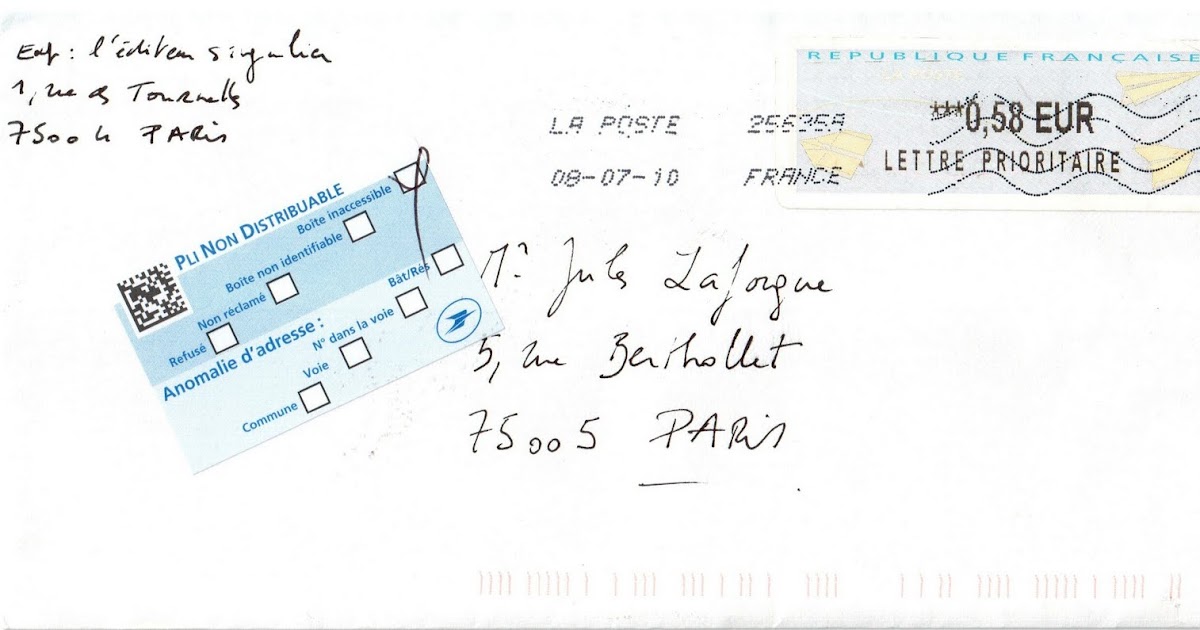 Exp : l'éditeur singulier
1, rue des Tournelles
75004 PARIS
REPUBLIQUE FRANÇAISE
***0,58 EUR
LETTRE PRIORITAIRE
LA POSTE 25635A
08-07-10 FRANCE
PLI NON DISTRIBUABLE
Boîte inaccessible
Boîte non identifiable
Non réclamé
Refusé
Anomalie d'adresse :
Bât/Rés
N° dans la voie
Voie
Commune
Mr Jules Laforgue
5, rue Berthollet
75005 PARIS